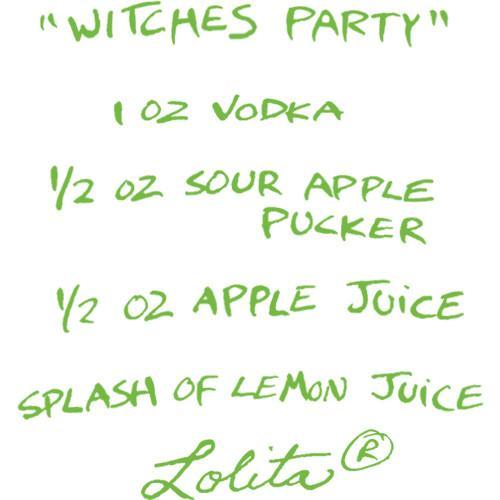 "WITCHES PARTY"
1 OZ VODKA
1/2 OZ SOUR APPLE
PUCKER
1/2 OZ APPLE JUICE
SPLASH OF LEMON JUICE
Lolita®